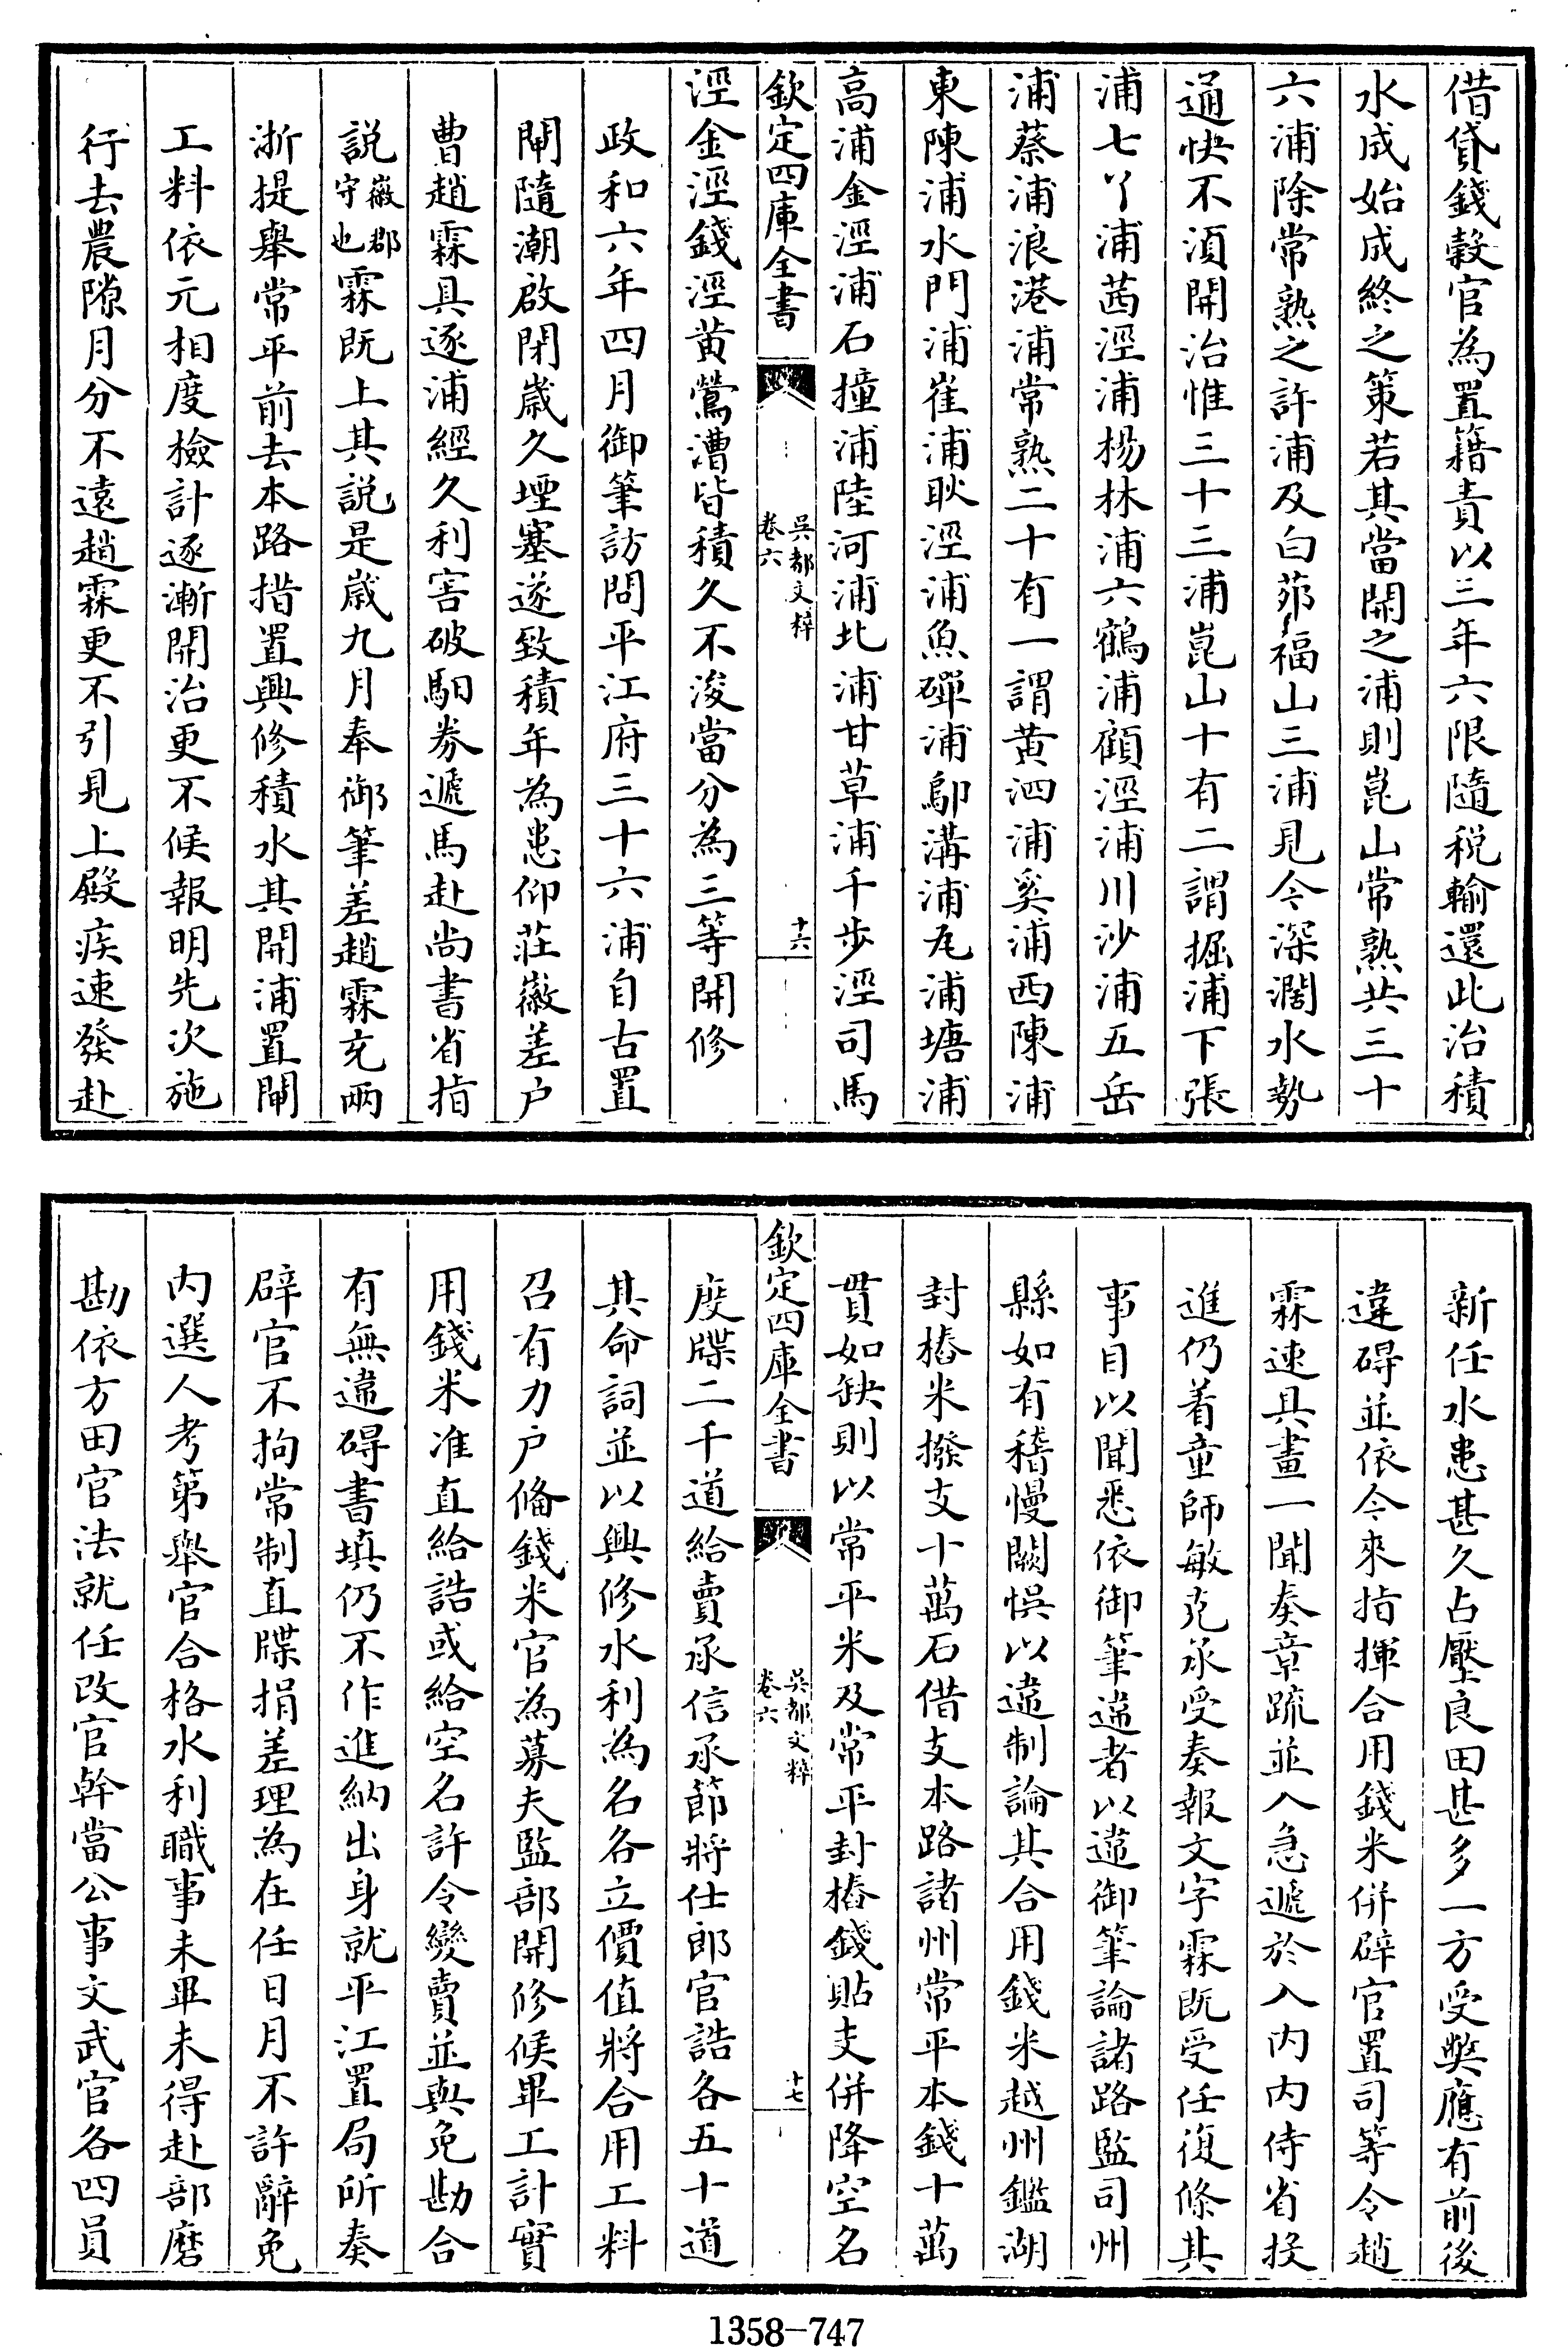 借貸錢穀官為置籍責以三年六限隨税輸還此治積
水成始成終之策若其當開之浦則崑山常熟共三十
六浦除常熟之許浦及白茆福山三浦見今深濶水勢
通快不湏開治惟三十三浦崑山十有二謂掘浦下張
浦七丫浦茜涇浦楊林浦六鶴浦顧涇浦川沙浦五岳
浦蔡浦浪港浦常熟二十有一謂黄泗浦奚浦西陳浦
東陳浦水門浦崔浦耿涇浦魚磾浦鄔溝浦瓦浦塘浦
高浦金涇浦石撞浦陸河浦北浦甘草浦千步涇司馬
欽定四庫全書
吳都文粹
卷六
十六
涇金涇錢涇黄鶯漕皆積久不浚當分為三等開修
政和六年四月御筆訪問平江府三十六浦自古置
閘隨潮啟閉歲久堙塞遂致積年為患仰莊徽差户
曹趙霖具逐浦經久利害破馹劵遞馬赴尚書省指
説徽郡守也霖既上其説是歲九月奉御筆差趙霖充兩
浙提舉常平前去本路措置興修積水其開浦置閘
工料依元相度檢計逐漸開治更不候報明先次施
行去農隙月分不遠趙霖更不引見上殿疾速發赴
新任水患甚久占壓良田甚多一方受獘應有前後
違碍並依今來指揮合用錢米併辟官置司等令趙
霖速具畫一聞奏章疏並入急遞於入内内侍省投
進仍着童師敏充承受奏報文字霖既受任復條其
事目以聞悉依御筆違者以違御筆論諸路監司州
縣如有稽慢闕悞以違制論其合用錢米越州鑑湖
封樁米撥支十萬石借支本路諸州常平本錢十萬
貫如缺則以常平米及常平封樁錢貼支併降空名
欽定四庫全書
吳都文粹
卷六
十七
度牒二千道給賣承信承節將仕郎官誥各五十道
其命詞並以興修水利為名各立價值將合用工料
召有力户備錢米官為募夫監部開修候畢工計實
用錢米准直給誥或給空名許令變賣並與免勘合
有無違碍書填仍不作進納出身就平江置局所奏
辟官不拘常制直牒捐差理為在任日月不許辭免
内選人考第舉官合格水利職事未畢未得赴部磨
勘依方田官法就任改官幹當公事文武官各四員
1358—747